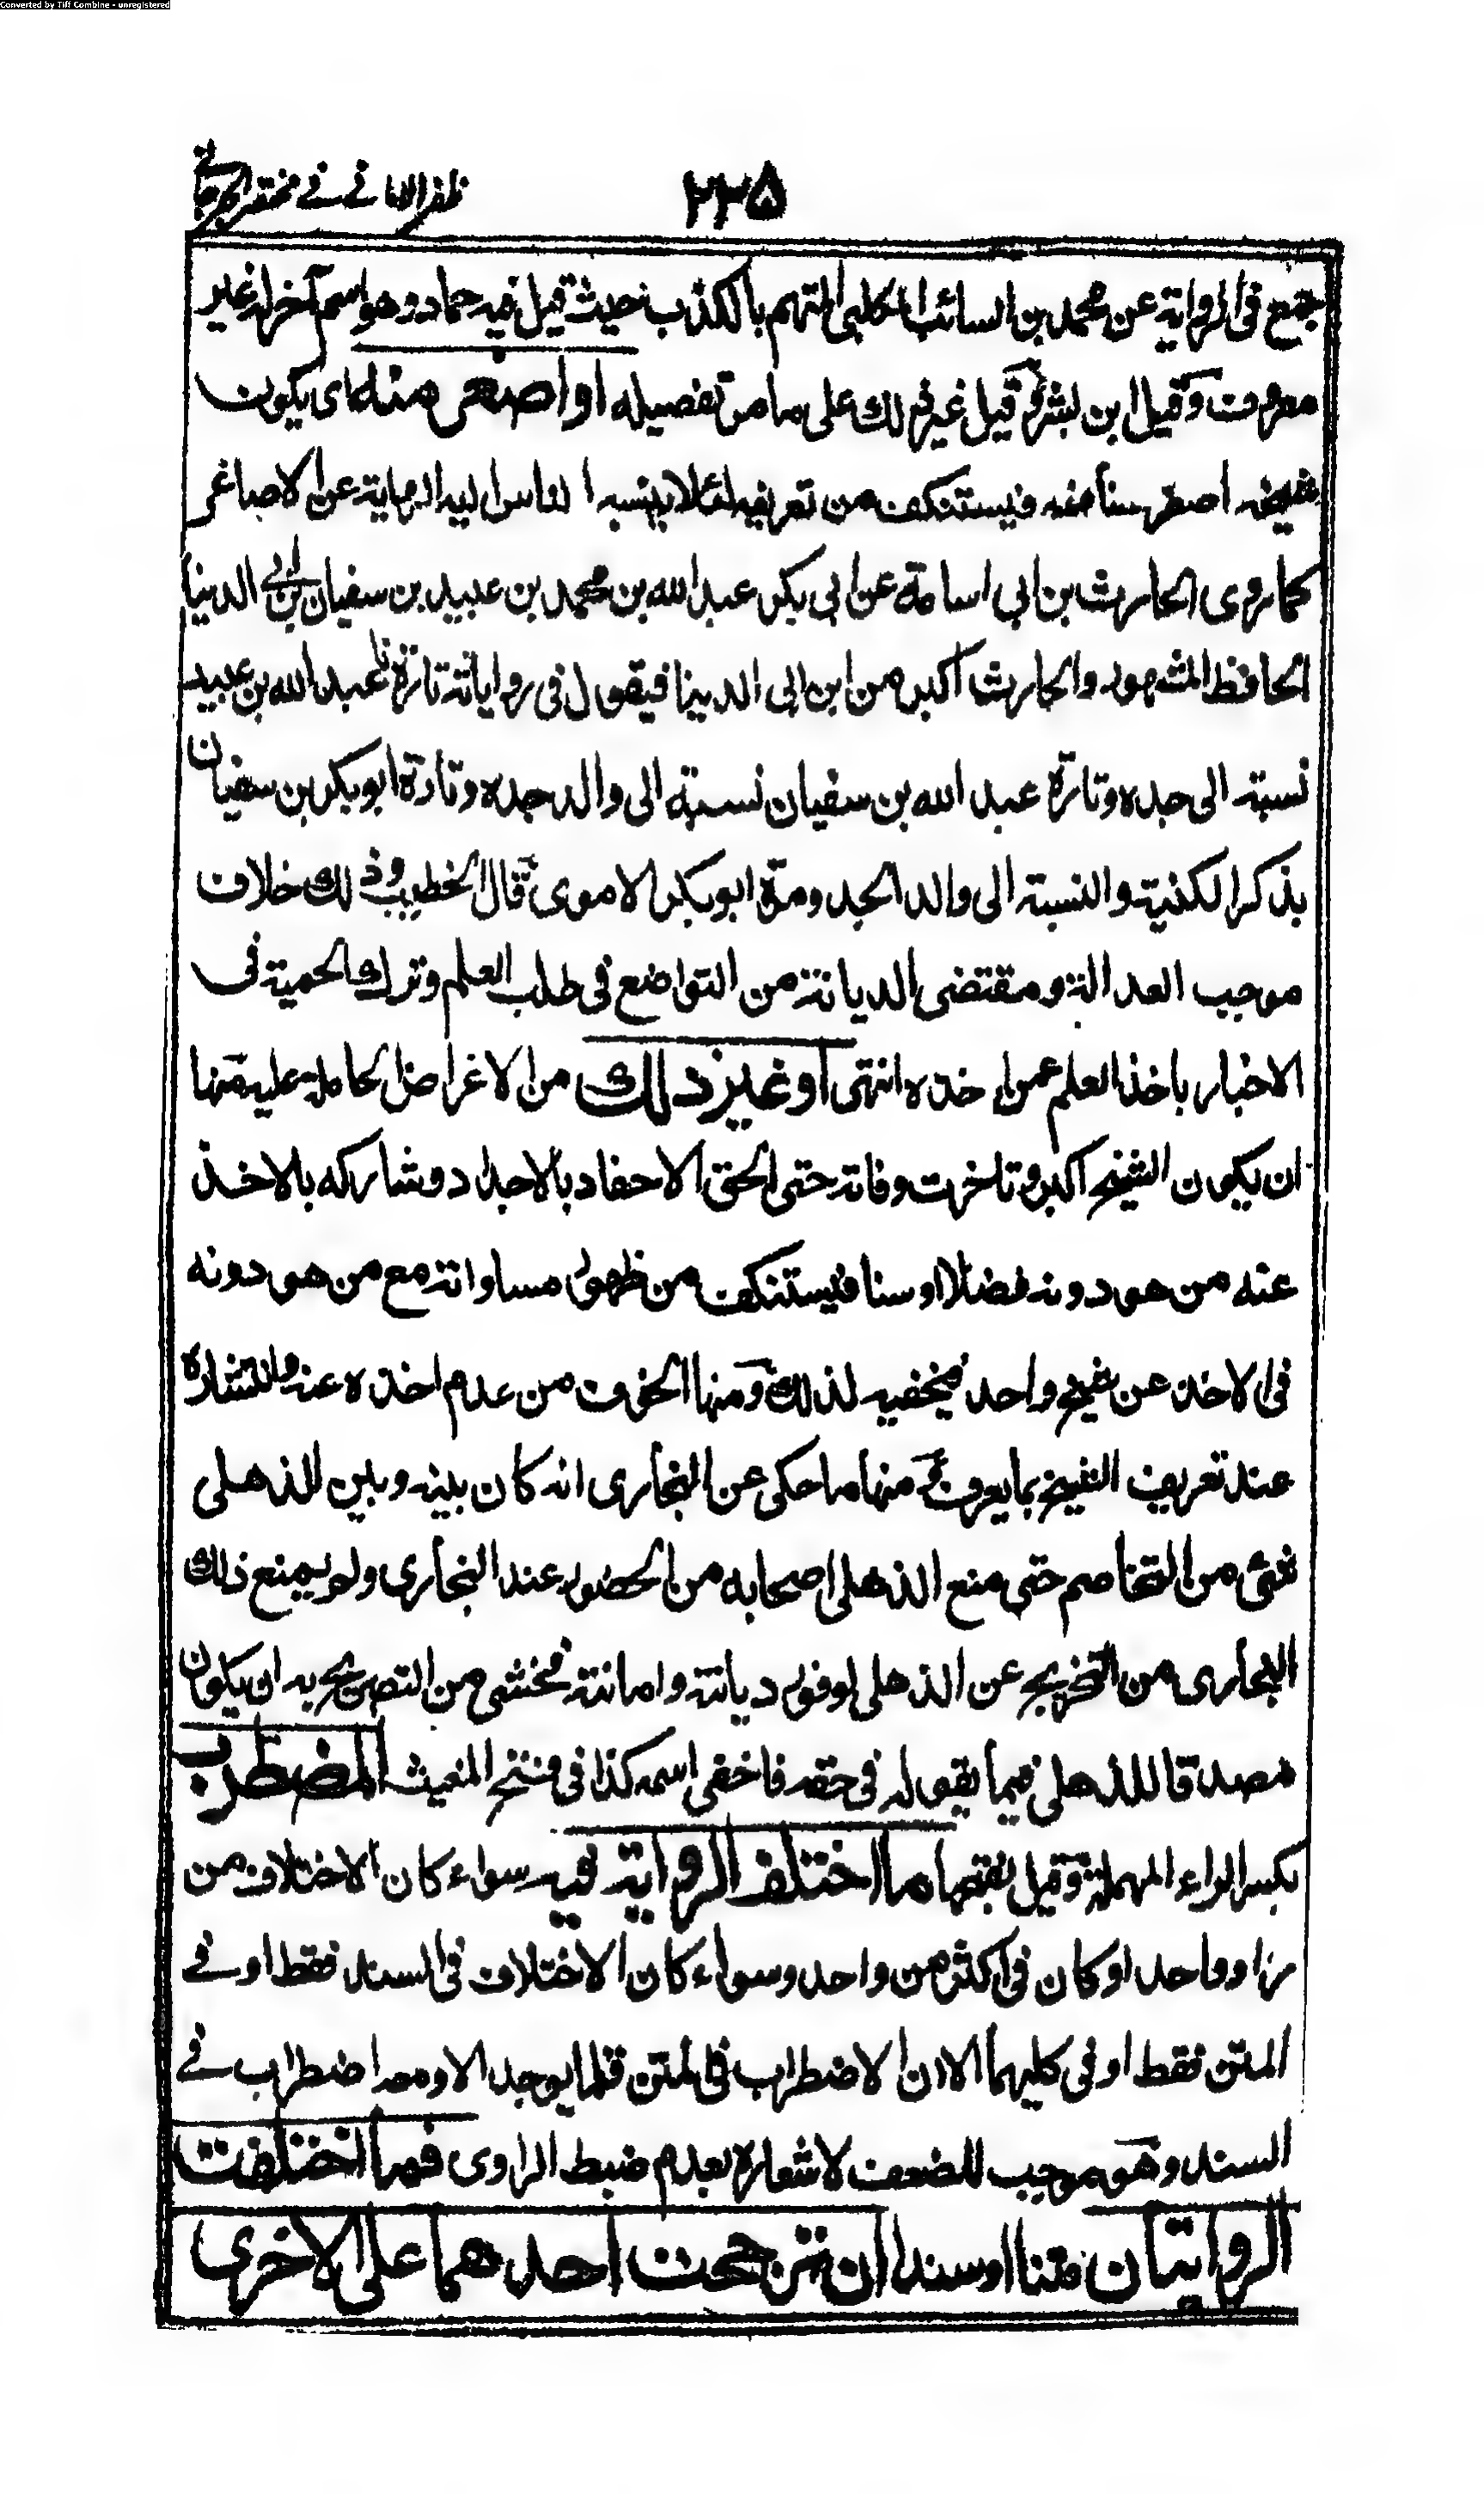 Converted by Tiff Combine - unregistered
ظفر الامانے فے مختصر الجرجانے
٢٢٥
جمع فی الروایة عن محمد بن السائب الکلبی المتهم بالکذب حیث قیل فیه حماد وهو اسم آخر له غیر
معروف وقیل ابن بشر وقیل غیر ذلك علی ما مر تفصیله او اصغر منه ای یکون
شیخه اصغر سنا منه فیستنکف من تعریفه لئلا ینسبه الناس الیه الروایة عن الاصاغر
کما روی الحارث بن ابی اسامة عن ابی بکر عبد الله بن محمد بن عبید بن سفیان بن ابی الدنیا
الحافظ المشهور والحارث اکبر من ابن ابی الدینا فیقول فی روایاته تارة عبد الله بن عبید
نسبته الی جده وتارة عبد الله بن سفیان نسبته الی والد جده وتارة ابو بکر بن سفیان
بذکر الکنیة والنسبة الی والد الجد ومرة ابو بکر الاموی قال الخطیب وذلك خلاف
موجب العدالة ومقتضی الدیانة من التواضع فی طلب العلم وترك الحمیة فی
الاخبار باخذ العلم عمن اخذه انتهی او غیر ذلك من الاغراض الحاملة علیه منها
ان یکون الشیخ اکبر وتاخرت وفاته حتی الحق الاحفاد بالاجداد وشارکه بالاخذ
عنه من هو دونه فضلا او سنا فیستنکف من ظهور مساواته مع من هو دونه
فی الاخذ عن شیخ واحد فیخفیه لذلك ومنها الخوف من عدم اخذه عنه وانتشاره
عند تعریف الشیخ بما یعرف ومنها ما حکی عن البخاری انه کان بینه وبین الذهلی
شئ من التخاصم حتی منع الذهلی اصحابه من الحضور عند البخاری ولم یمنع ذلك
البخاری من التخریج عن الذهلی لوفور دیانته وامانته فخشی من التصریح به ان یکون
مصدقا للذهلی فیما یقوله فی حقه فاخفی اسمه کذا فی فتح المغیث المضطرب
بکسر الراء المهملة وقیل بفتحها ما اختلف الروایة فیه سواء کان الاختلاف من
راو واحد او کان فی اکثر من واحد وسواء کان الاختلاف فی السند فقط او فے
المتن فقط او فی کلیهما الا ان الاضطراب فی المتن قلما یوجد الا ومعه اضطراب فے
السند وهو موجب للضعف لاشعاره بعدم ضبط الراوی فما اختلفت
الروایتان متنا او سندا ان ترجحت احدهما علی الاخری